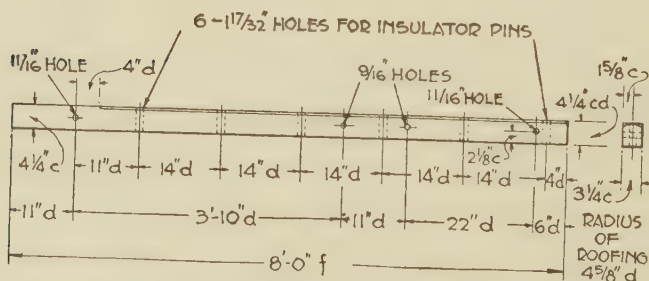 6 - 1 17/32" HOLES FOR INSULATOR PINS
11/16" HOLE
4"d
9/16" HOLES
11/16" HOLE
1 5/8"c
4 1/4"cd
4 1/4"c
2 1/8"c
11"d
14"d
14"d
14"d
14"d
14"d
4"d
3 1/4"c
11"d
3'-10"d
11"d
22"d
6"d
RADIUS
OF
ROOFING
4 5/8"d
8'-0" f